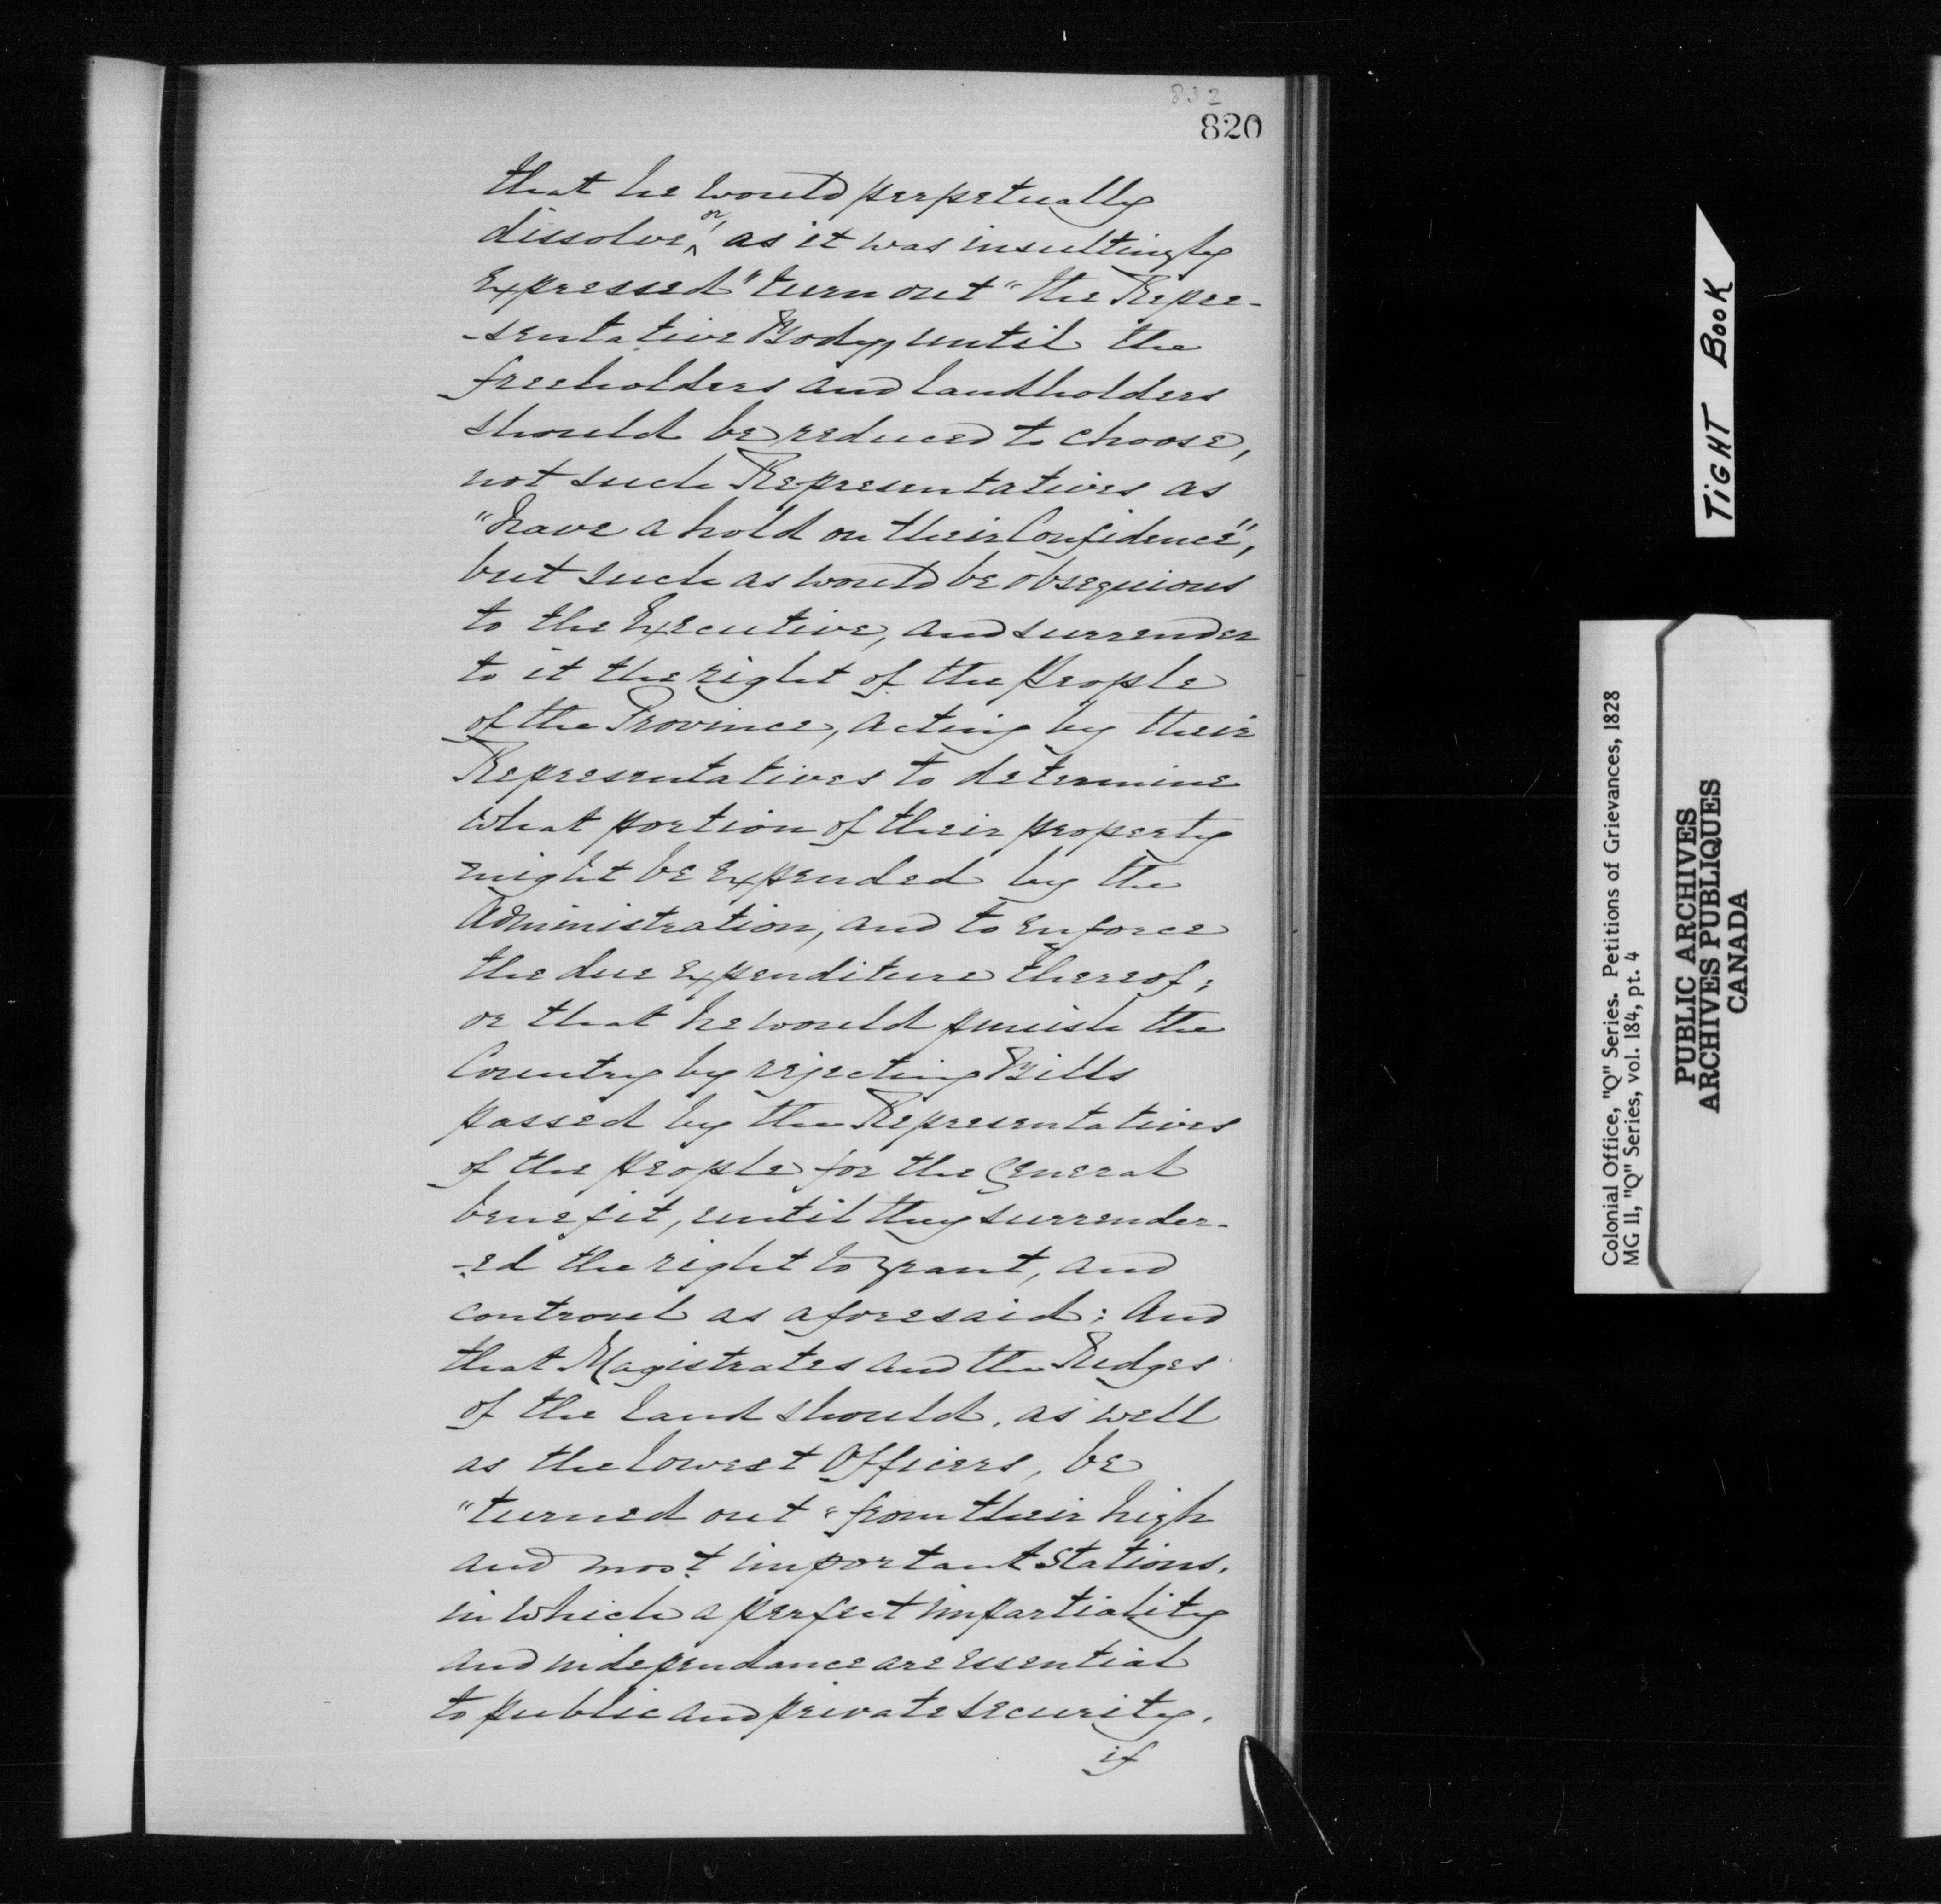 832
820
that he would perpetually
dissolve, or, as it was insultingly
expressed "turn out" the Repre-
-sentative Body, until the
freeholders and landholders
should be reduced to choose,
not such Representatives as
"have a hold on their Confidence",
but such as would be obsequious
to the Executive, and surrender
to it the right of the people
of the Province, acting by their
Representatives to determine
what portion of their property
might be expended by the
Administration, and to enforce
the due expenditure thereof;
or that he would punish the
Country by rejecting Bills
passed by the Representatives
of the people for the General
benefit, until they surrender-
-ed the right to grant, and
controul as aforesaid; And
that Magistrates and the Judges
of the land should, as well
as the lowest Officers, be
"turned out" from their high
and most important Stations,
in which a perfect impartiality
and independance are essential
to public and private security,
if
TIGHT BOOK
Colonial Office, "Q" Series. Petitions of Grievances, 1828
MG 11, "Q" Series, vol. 184, pt. 4
PUBLIC ARCHIVES
ARCHIVES PUBLIQUES
CANADA